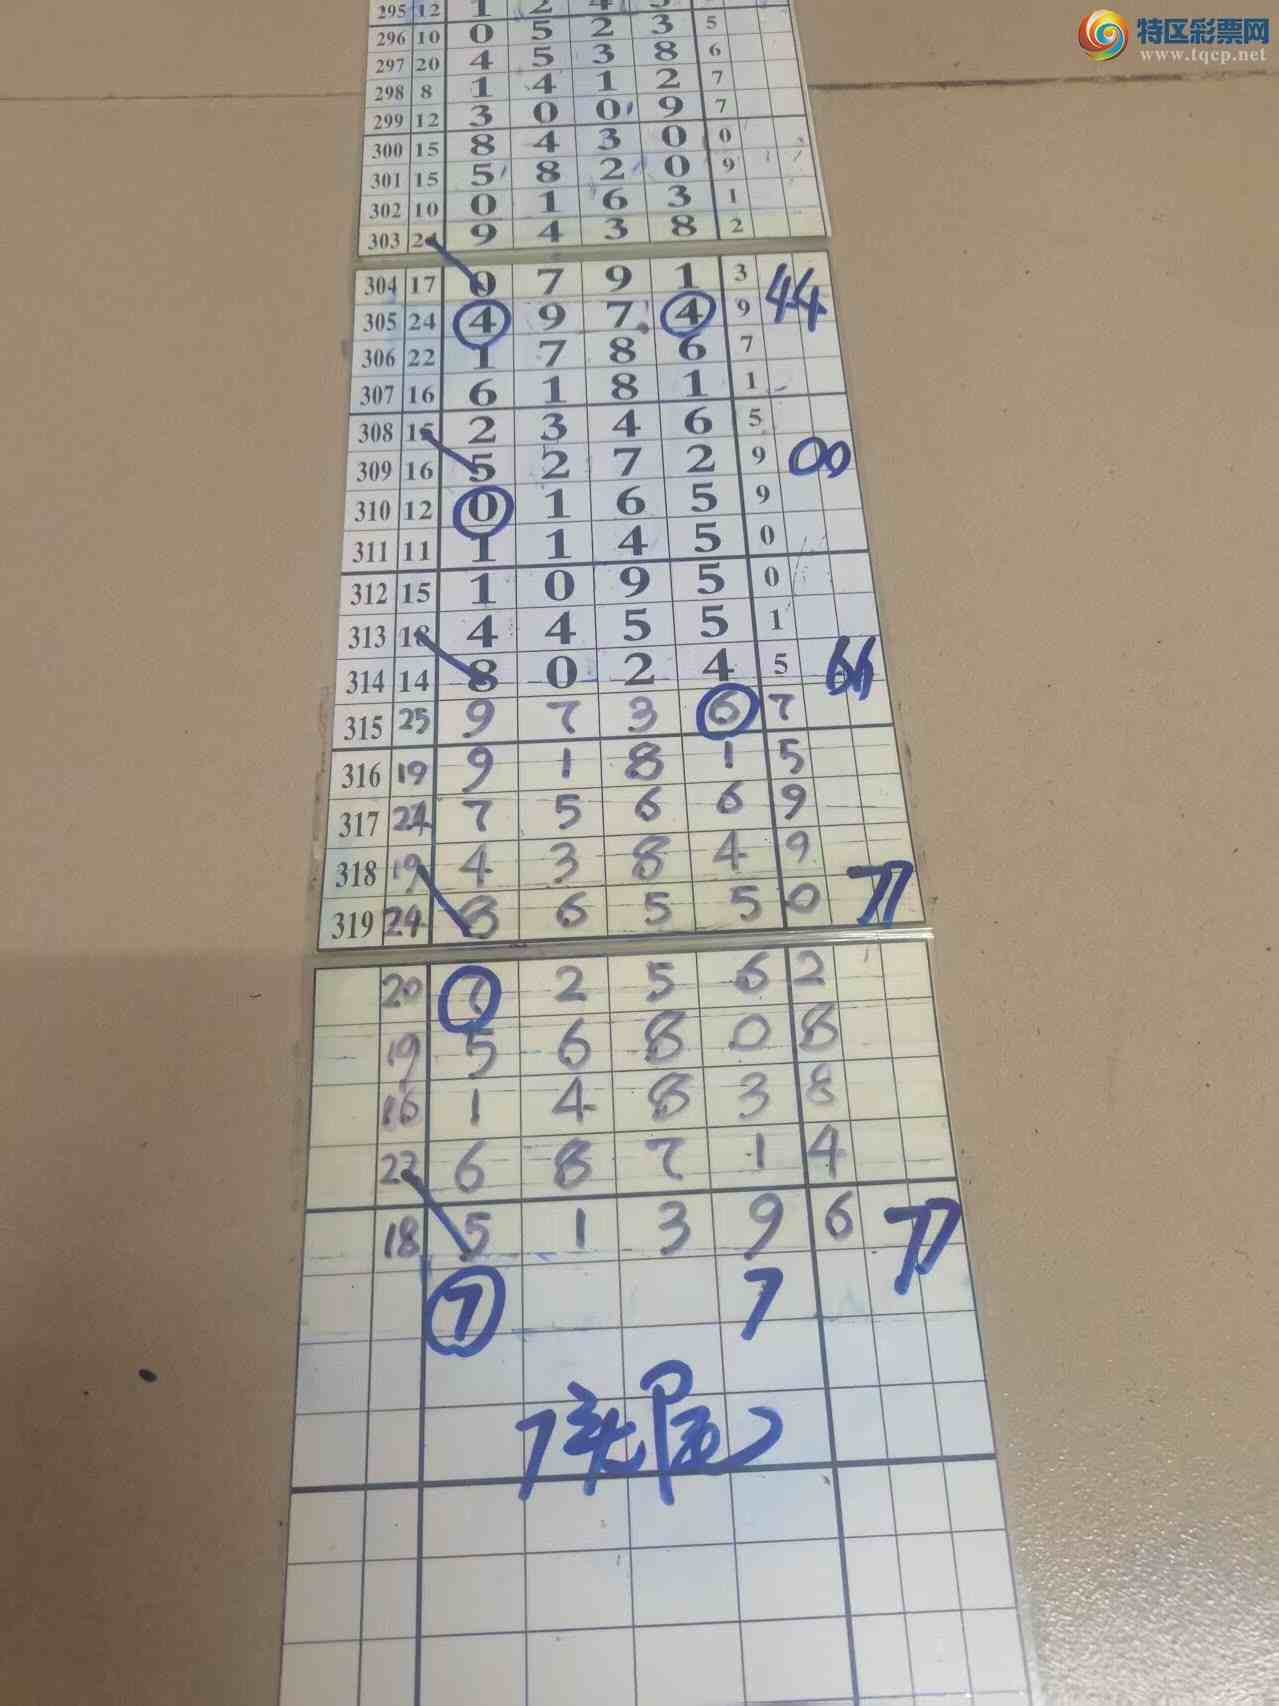 特区彩票网
www.tqcp.net
295 12 1 2 4
296 10 0 5 2 3 5
297 20 4 5 3 8 6
298 8 1 4 1 2 7
299 12 3 0 0 9 7
300 15 8 4 3 0 0
301 15 5 8 2 0 9
302 10 0 1 6 3 1
303 24 9 4 3 8 2
304 17 0 7 9 1 3 44
305 24 4 9 7 4 9
306 22 1 7 8 6 7
307 16 6 1 8 1 1
308 15 2 3 4 6 5
309 16 5 2 7 2 9 00
310 12 0 1 6 5 9
311 11 1 1 4 5 0
312 15 1 0 9 5 0
313 18 4 4 5 5 1
314 14 8 0 2 4 5 66
315 25 9 7 3 6 7
316 19 9 1 8 1 5
317 24 7 5 6 6 9
318 19 4 3 8 4 9
319 24 8 6 5 5 0 77
20 7 2 5 6 2
19 5 6 8 0 8
16 1 4 8 3 8
22 6 8 7 1 4
18 5 1 3 9 6 77
7 7
7头尾